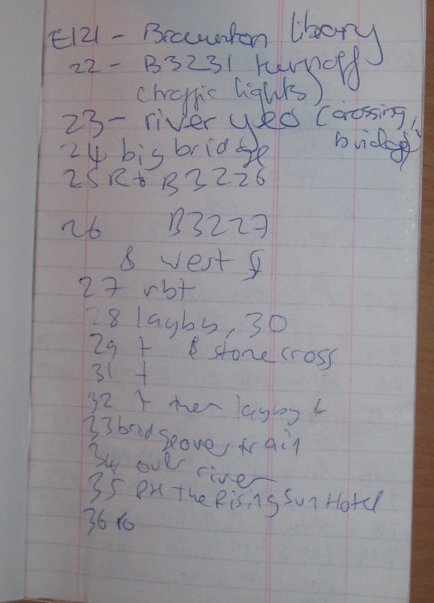 E121 - Braunton library
22 - B3231 turnoff
(traffic lights)
23 - river yeo (crossing,
bridge)
24 big bridge
25 R to B3226
26 B3227
& west
27 rbt
28 layby, 30
29 t & stone cross
31 t
32 t then layby L
33 bridge over train
34 over river
35 PH The Rising Sun Hotel
36 ro